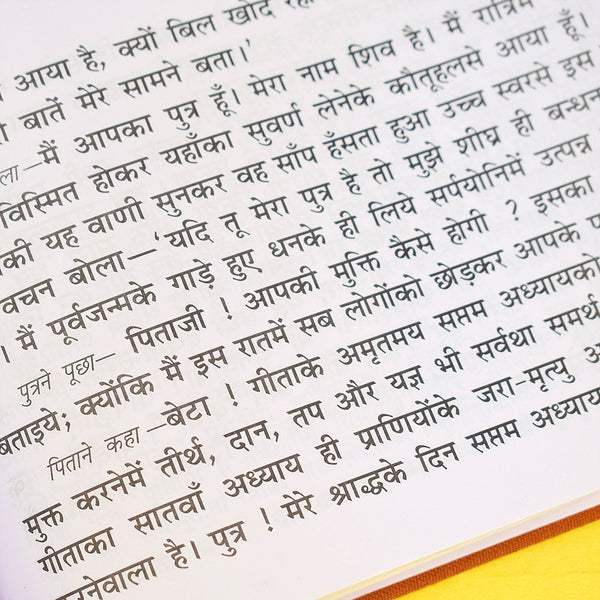 आया है, क्यों बिल खोद
बातें मेरे सामने बता।'
—मैं आपका पुत्र हूँ। मेरा नाम शिव है। मैं रात्रिमें
विस्मित होकर यहाँका सुवर्ण लेनेके कौतूहलसे आया हूँ।
यह वाणी सुनकर वह साँप हँसता हुआ उच्च स्वरसे इस
वचन बोला—'यदि तू मेरा पुत्र है तो मुझे शीघ्र ही बन्धन
। मैं पूर्वजन्मके गाड़े हुए धनके ही लिये सर्पयोनिमें उत्पन्न
पुत्रने पूछा— पिताजी ! आपकी मुक्ति कैसे होगी ? इसका
बताइये; क्योंकि मैं इस रातमें सब लोगोंको छोड़कर आपके
पिताने कहा —बेटा ! गीताके अमृतमय सप्तम अध्यायको
मुक्त करनेमें तीर्थ, दान, तप और यज्ञ भी सर्वथा समर्थ
गीताका सातवाँ अध्याय ही प्राणियोंके जरा-मृत्यु
है। पुत्र ! मेरे श्राद्धके दिन सप्तम अध्याय